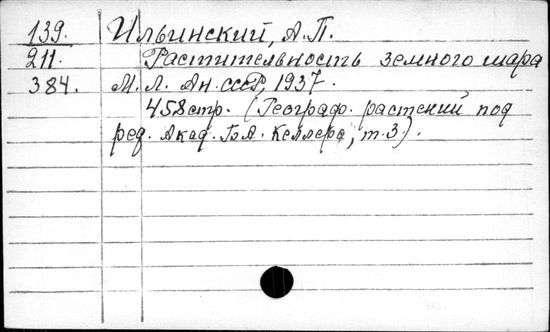 139. Ильинский, А.П.
211. Растительность земного шара
384. М. Л. Ан. СССР, 1937.
458стр. (Географ. растений под
ред. Акад. Б.А. Келлера, т.3).